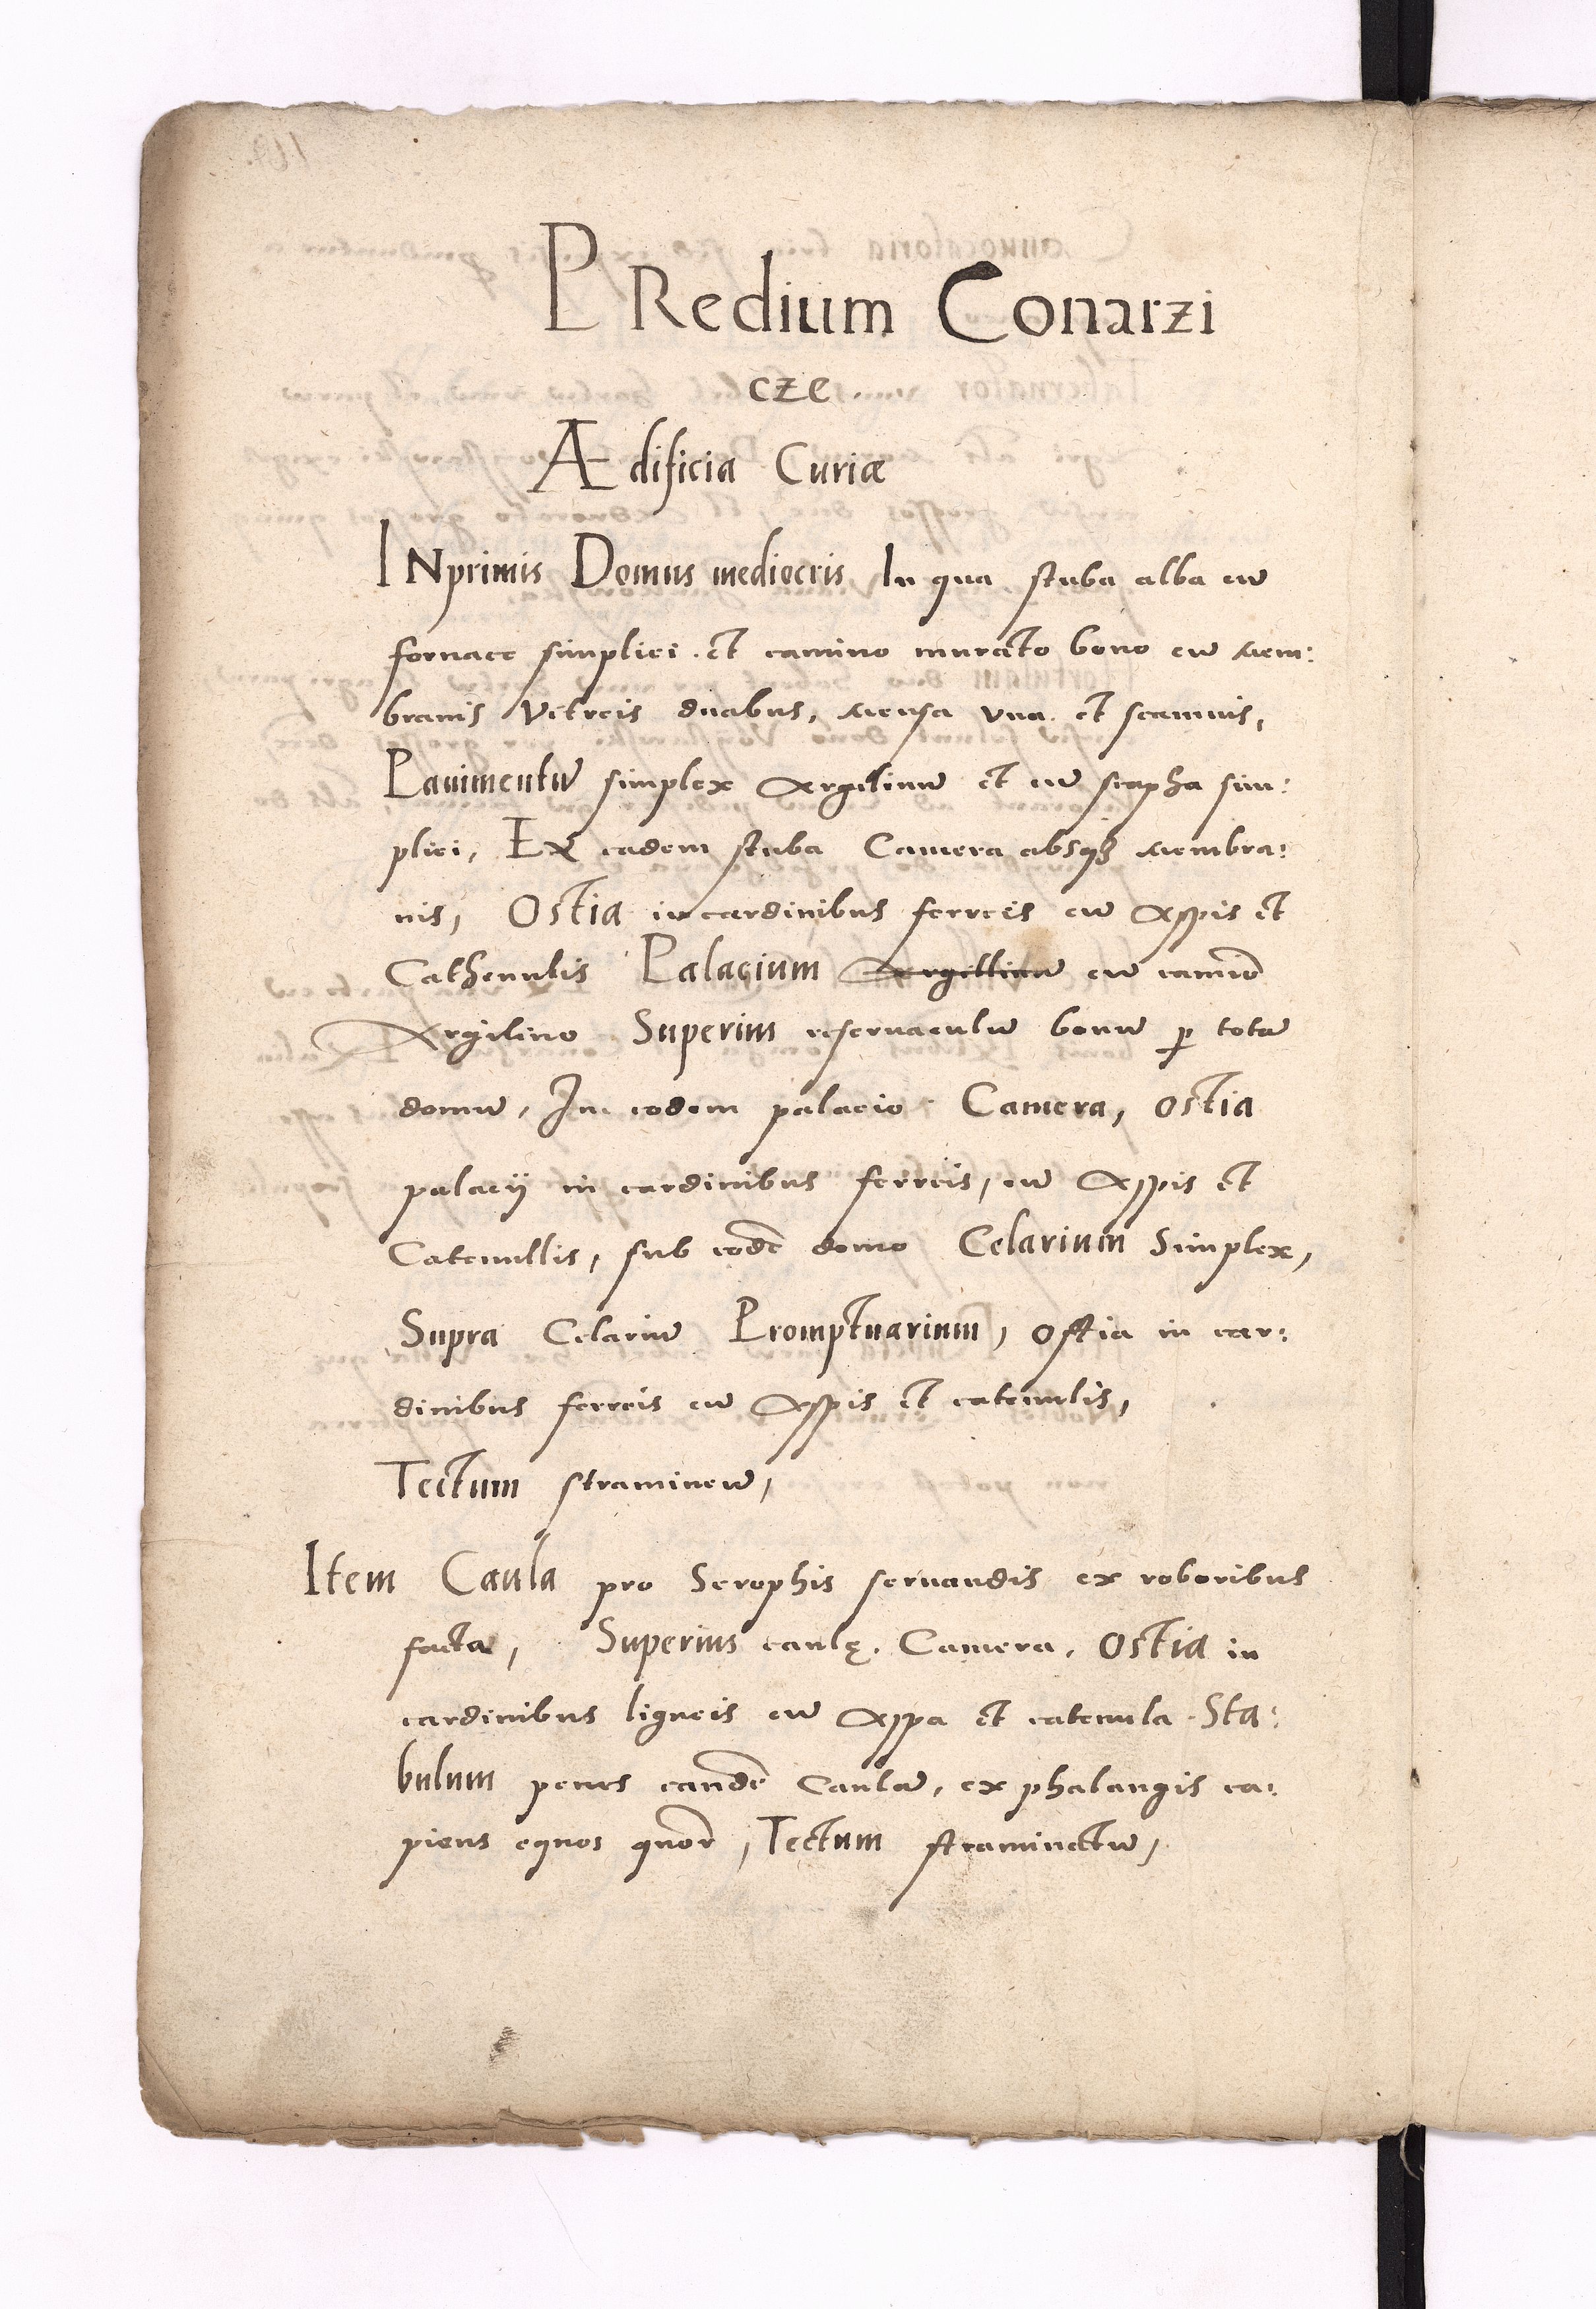 PRedium Conarzi
cze.
Ædificia Curiæ
INprimis Domus mediocris In qua stuba alba cũ
fornace simplici. et camino murato bono cũ mem:
branis Vitreis duabus, mensa vna. et scamnis,
Pauimentũ simplex Argilinũ et cũ scapha sim:
plici, Ex eadem stuba Camera absqꝫ membra:
nis, Ostia in cardinibus ferreis cũ Appis et
Cathenulis Palacium Argillinũ cũ camiõ
Argilino Superius reseruaculũ bonũ ꝑ totã
domũ, In eodem palacio Camera, Ostia
palacÿ in cardinibus ferreis, cũ Appis et
Catenullis, sub eodẽ domo Celarium Simplex,
Supra Celariũ Promptuarium, Ostia in car:
dinibus ferreis cũ Appis et catenulis,
Tectum stramineũ,
Item Caula pro Scrophis seruandis ex roboribus
facta, Superius caulę. Camera. Ostia in
cardinibus ligneis cũ Appa et catenula. Sta:
bulum penes eandẽ Caulã, ex phalangis ca:
piens equos quor̃, Tectum straminetũ,